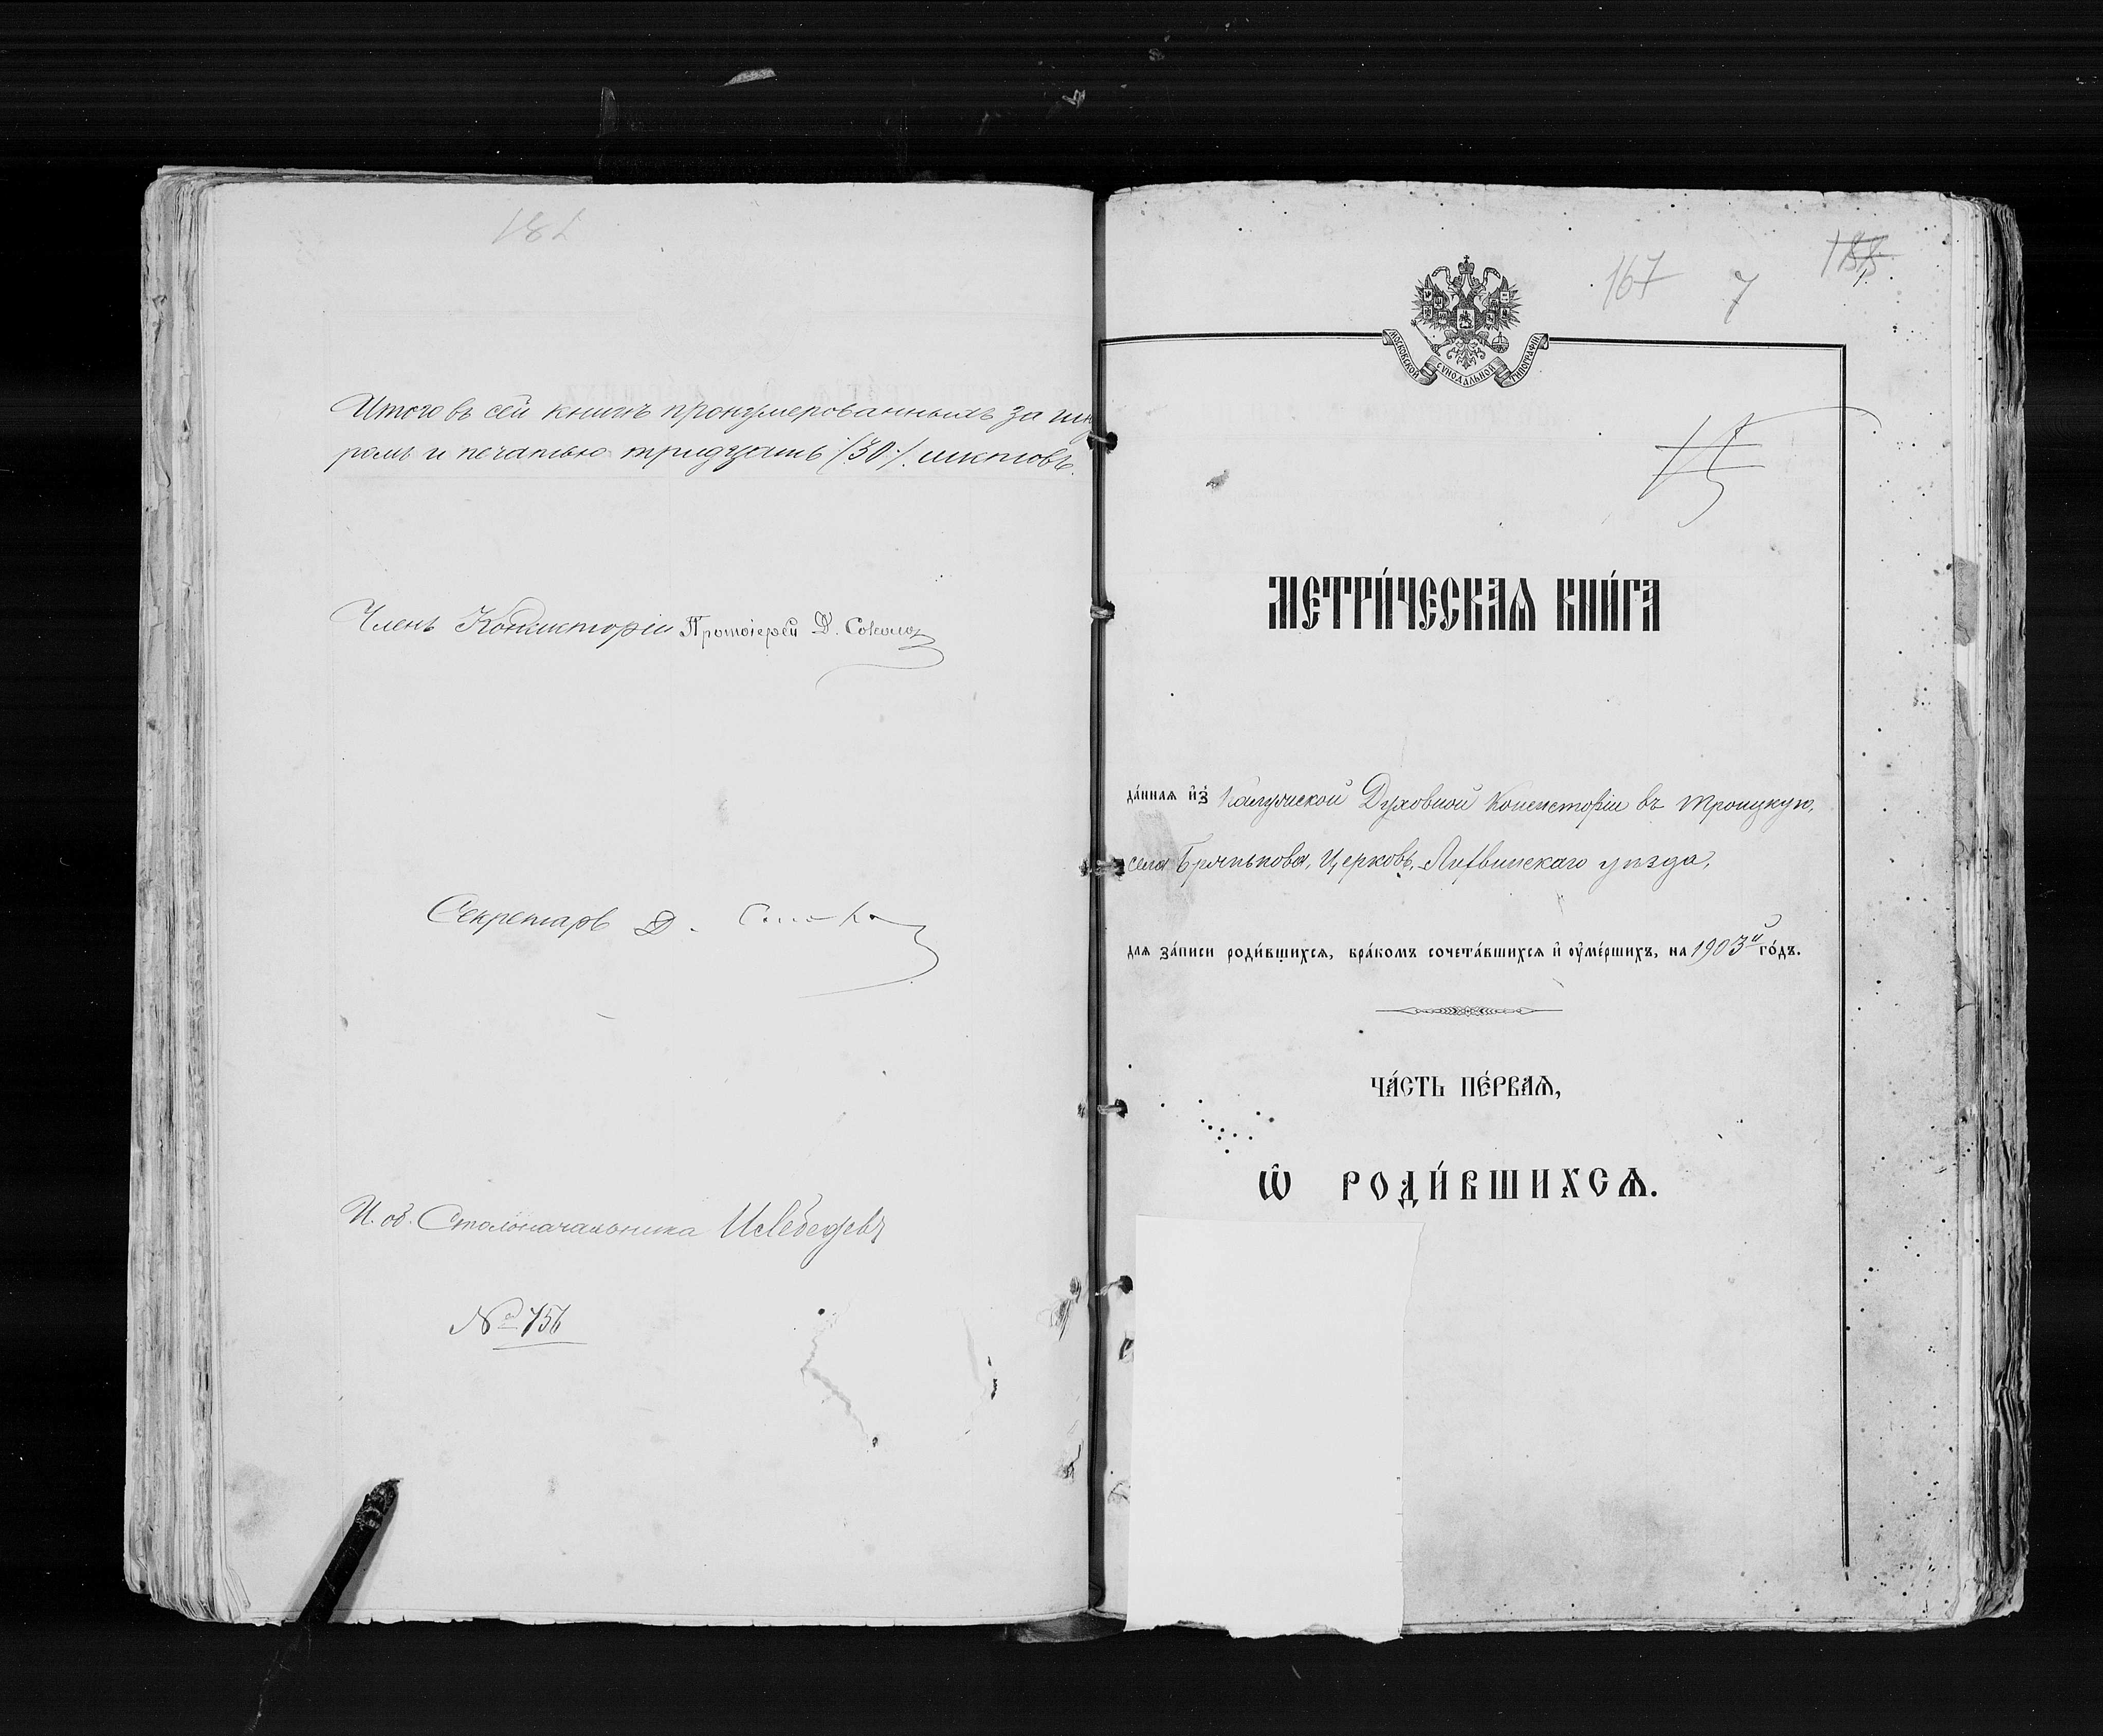 Итого въ сей книгѣ пронумерованныхъ за шну
ромъ и печатью тридцать /30/ листовъ.
Членъ Консисторіи Протоіерей Д. Соколов
Секретарь Д.
И. об. Столоначальника И Лебедевъ
№ 756
167 7
МОСКОВСКОЙ СѴНОДАЛЬНОЙ ТИПОГРАФІИ
МЕТРИ́ЧЕСКАѦ КНИ́ГА
да́ннаѧ и҆з̾ Калужской Духовной Консисторіи въ Троицкую,
села Брянькова, Церковь, Лихвинскаго уѣзда,
длѧ за́писи роди́вшихсѧ, бра́комъ сочета́вшихсѧ и҆ ᲂу҆ме́ршихъ, на 1903й го́дъ.
ЧА́СТЬ ПЕ́РВАѦ,
Ѽ РОДИ́ВШИХСѦ.